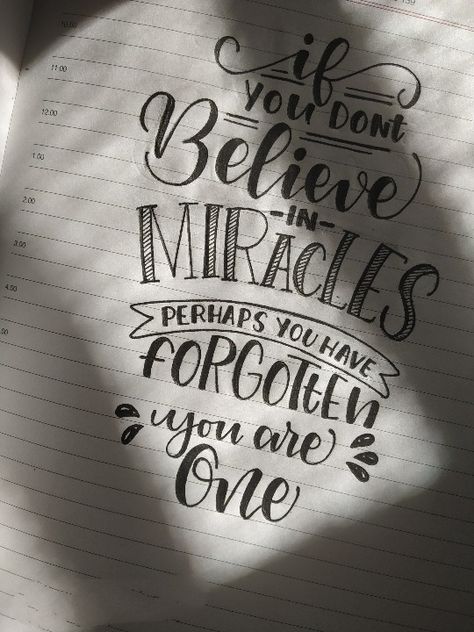 10.00
11.00
12.00
1.00
2.00
3.00
if
YOU DONT
Believe
-IN-
MIRACLES
PERHAPS YOU HAVE
FORGOTTEN
you are
One